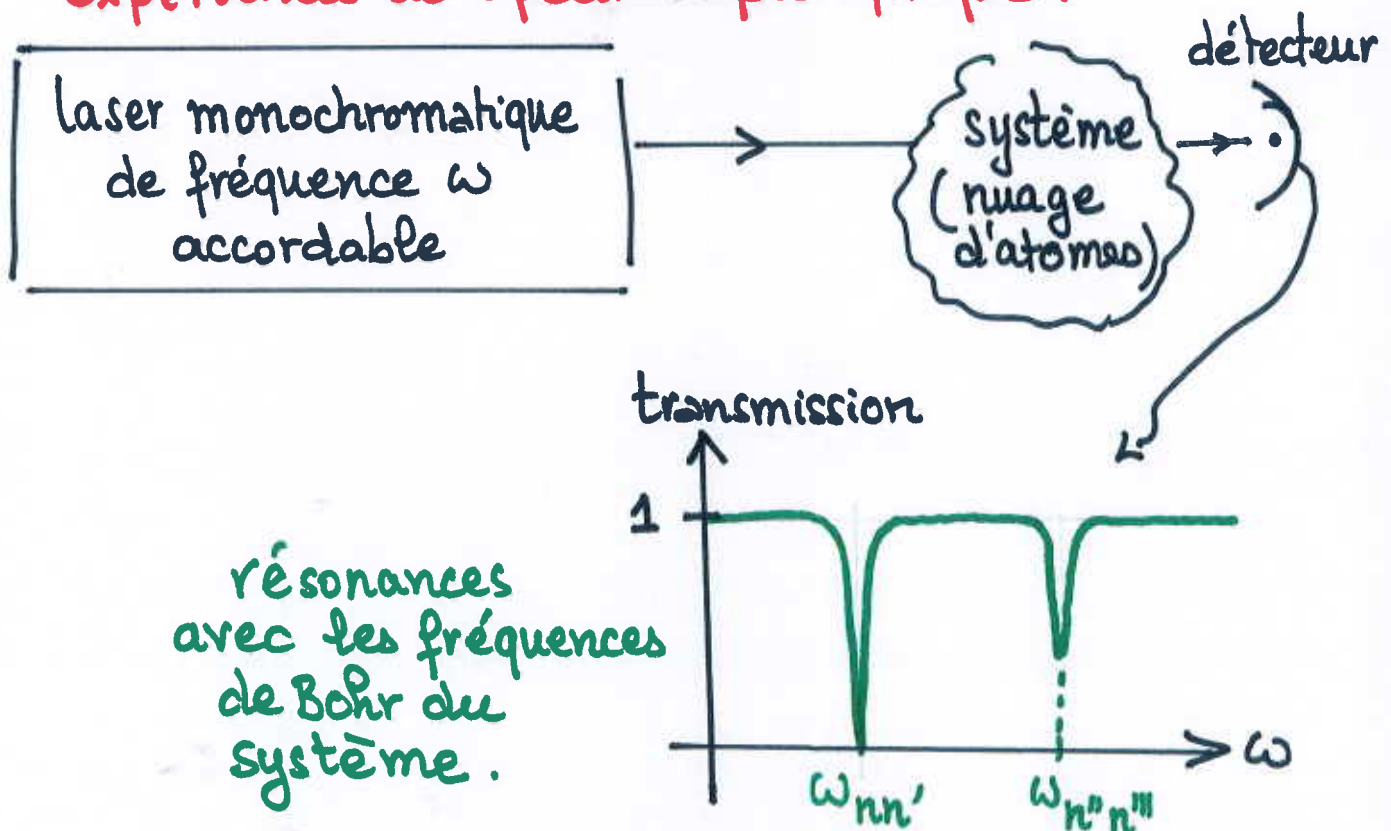 expériences de
laser monochromatique
de fréquence ω
accordable
système
(nuage
d'atomes)
détecteur
transmission
1
résonances
avec les fréquences
de Bohr du
système.
ω
ωnn'
ωn"n'''